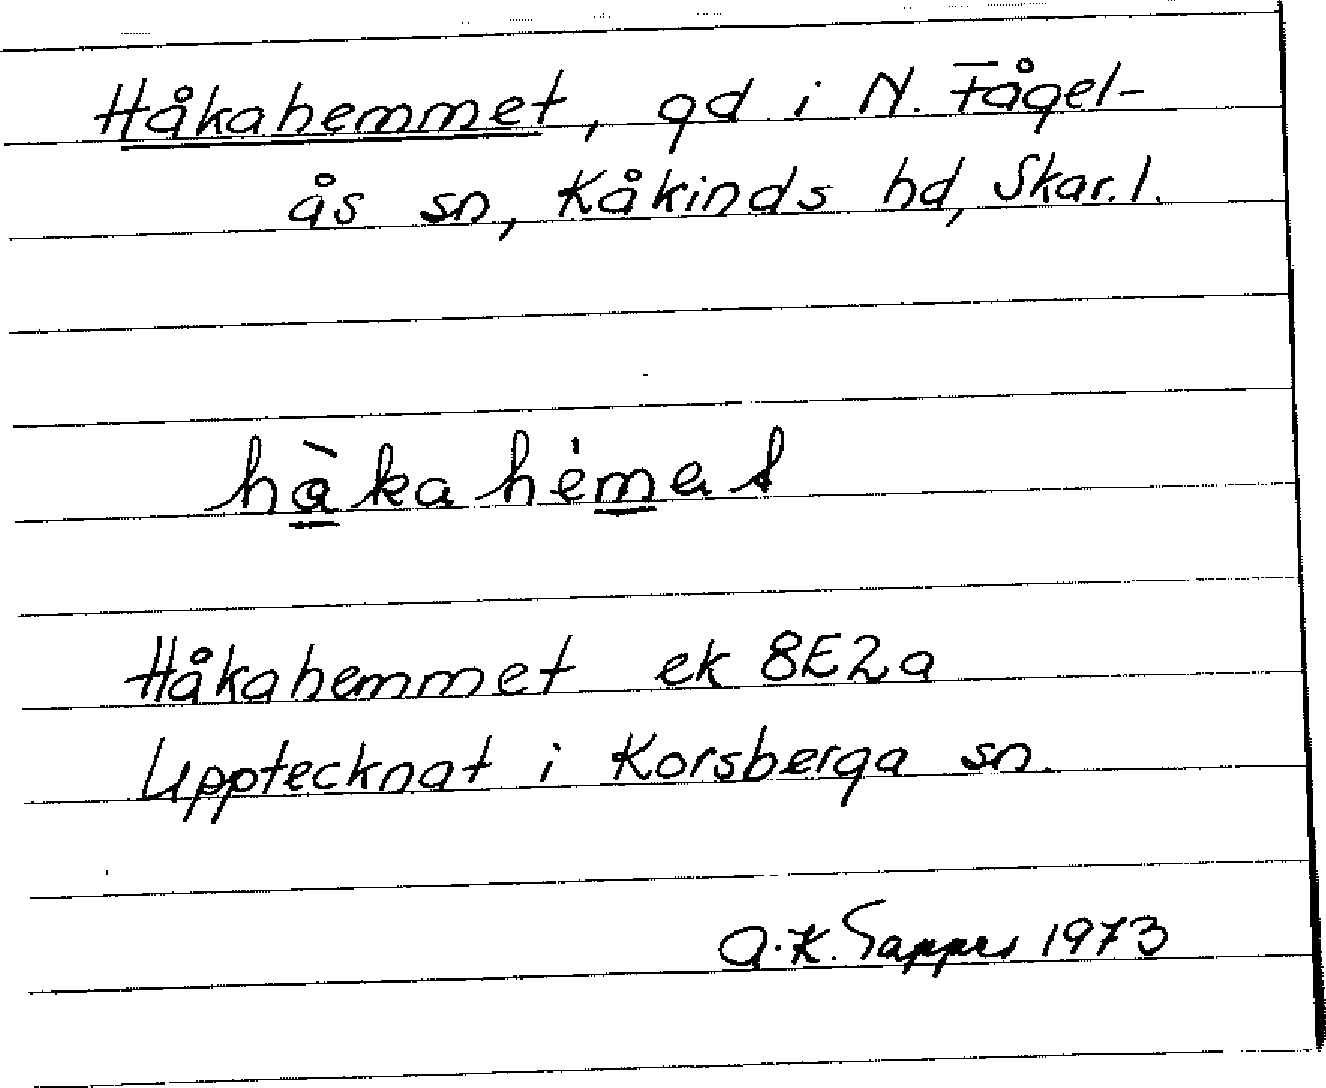 Håkahemmet, gd i N. Fågel-
ås sn, Kåkinds hd, Skar. l.
hàkahèmet
Håkahemmet ek 8E2a
Upptecknat i Korsberga sn.
A.K. Sapper 1973